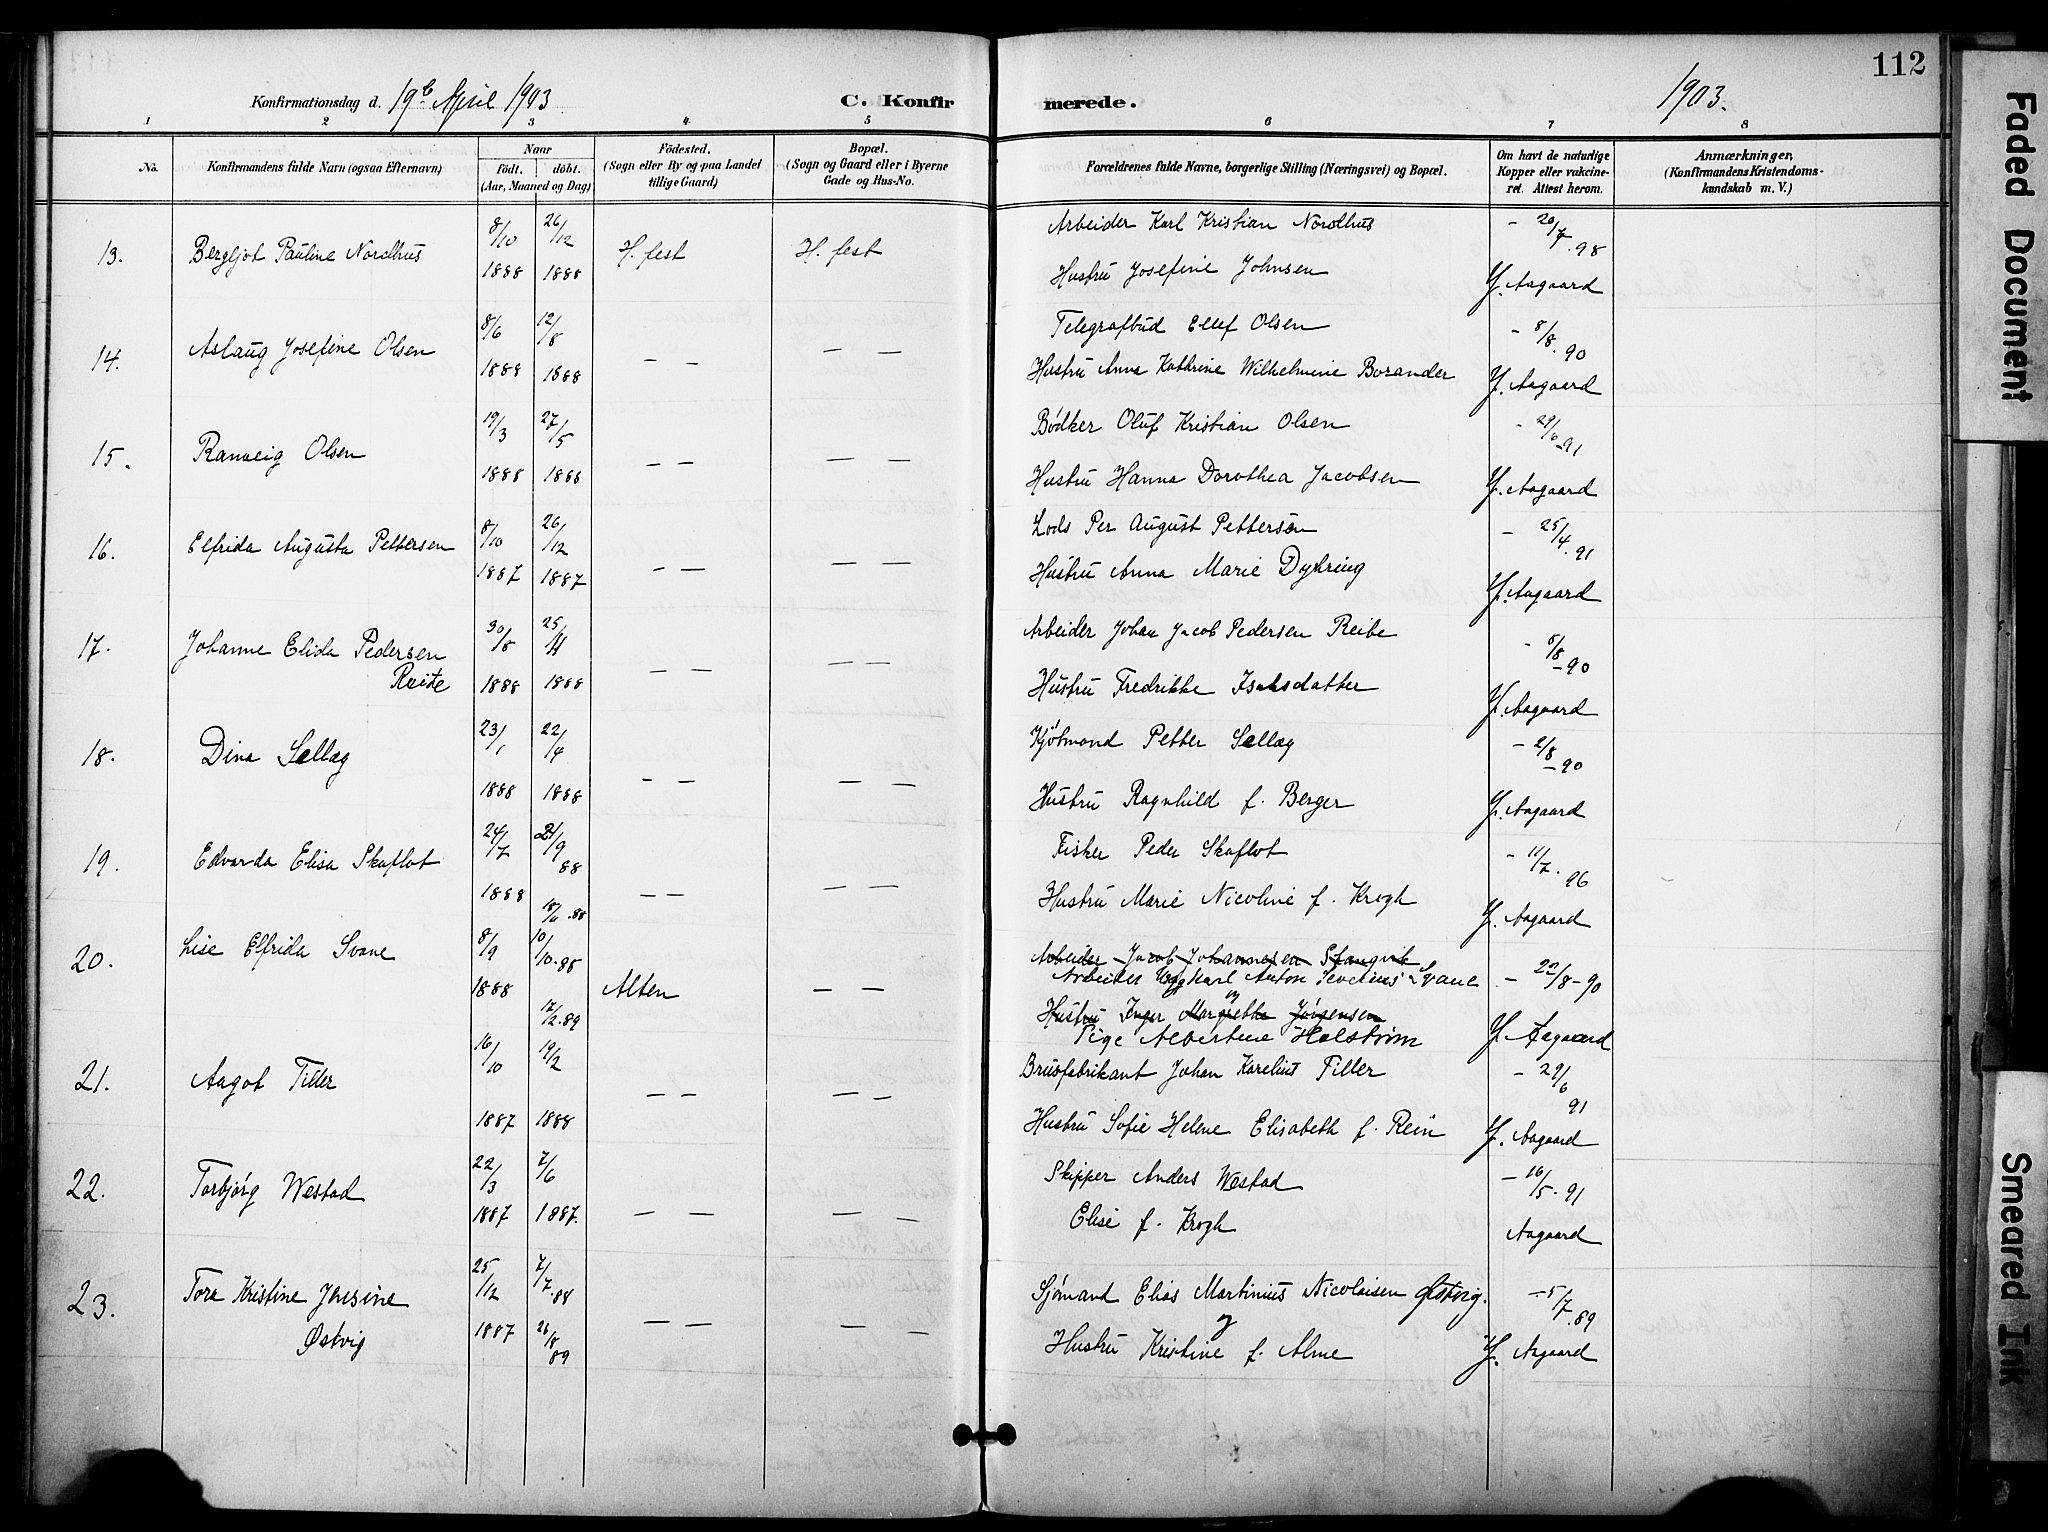 112
Konfirmationsdag d. 19de April 1903
C. Konfirmerede.
1903.
1 2 3 4 5 6 7 8
No.
Konfirmandens fulde Navn (ogsaa Efternavn)
Naar
født. døbt.
(Aar, Maaned og Dag)
Fødested.
(Sogn eller By og paa Landet
tillige Gaard)
Bopæl.
(Sogn og Gaard eller i Byerne
Gade og Hus-No.
Forældrenes fulde Navne, borgerlige Stilling (Næringsvei) og Bopæl.
Om havt de naturlige
Kopper eller vakcine-
ret. Attest herom.
Anmærkninger,
(Konfirmandens Kristendoms-
kundskab m. V.)
13. Bergljot Pauline Nordhus 8/10 1888 26/12 1888 H. fest H. fest Arbeider Karl Kristian Nordhus - 20/7.98
Hustru Josefine Johnsen J. Aagaard
14. Aslaug Josefine Olsen 8/6 1888 12/8 1888 — — — — Telegrafbud Ellef Olsen - 8/8.90
Hustru Anna Kathrine Wilhelmine Borander J. Aagaard
15. Ranveig Olsen 19/3 1888 27/5 1888 — — — — Bødker Oluf Kristian Olsen - 29/6-91
Hustru Hanna Dorothea Jacobsen J. Aagaard
16. Elfrida Augusta Pettersen 8/10 1887 26/12 1887 — — — — Lods Per August Petterson - 25/4.91
Hustru Anna Marie Dyhring J. Aagaard
17. Johanne Elida Pedersen 30/8 1888 25/11 1888 — — — — Arbeider Johan Jacob Pedersen Reibe - 8/8-90
Hustru Fredrikke Isaksdatter J. Aagaard
18. Dina Sellæg 23/1 1888 22/4 1888 — — — — Kjøbmand Petter Sellæg - 2/8-90
Hustru Ragnhild f. Berger J. Aagaard
19. Edvarda Elisa Skaflot 24/7 1888 21/9 88 — — — — Fisker Peder Skaflot - 11/7.96
Hustru Marie Nicoline f. Krogh J. Aagaard
18/11.88
20. Lise Elfrida Svane 8/9 1888 10/10.88 Alten — — Arbeider Jacob Johannesen Stangvik
Arbeider Karl Anton Severius Svane - 22/8-90
Hustru Inger Margrethe Jørgensen
Pige Albertine Holstrøm J. Aagaard
17/12.89
21. Aagot Tiller 16/10 1887 19/2 1888 — — — — Brusfabrikant Johan Karelius Tiller - 29/6 91
Hustru Sofie Helene Elisabeth f. Rein J. Aagaard
22. Torbjørg Westad 22/3 1887 7/6 1887. — — — — Skipper Anders Westad - 16/5.91
Elise f. Krogh Aagaard
23. Tora Kristine Jensine 25/12 1887 7/7.88 — — — — Sjømand Elias Martinius Nicolaisen Østvig. - 5/7.89
Østvig 26/8 89 Hustru Kristine f. Alme J. Aagaard
Faded Document
Smeared Ink